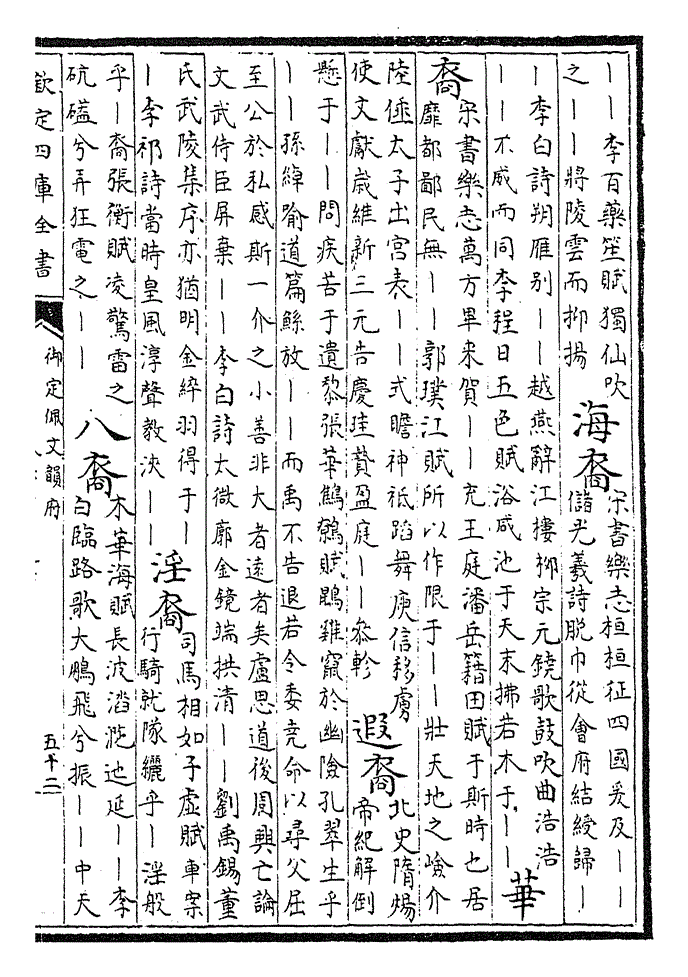 ——李百藥笙賦獨仙吹
之——將陵雲而抑揚
海裔
宋書樂志桓桓征四國爰及——
儲光羲詩脫巾從會府結綬歸——
—李白詩朔雁别——越燕辭江樓柳宗元鐃歌鼓吹曲浩浩
——不威而同李程日五色賦浴咸池于天末拂若木于——
華
裔
宋書樂志萬方畢來賀——充王庭潘岳籍田賦于斯時也居
靡都鄙民無——郭璞江賦所以作限于——壯天地之嶮介
陸倕太子出宮表——式瞻神祇蹈舞庾信移虜
使文獻歲維新三元告慶珪贄盈庭——叅軫
遐裔
北史隋煬
帝紀解倒
懸于——問疾苦于遺黎張華鷦鷯賦鵾雞竄於幽險孔翠生乎
——孫綽喻道篇鯀放——而禹不告退若令委堯命以尋父屈
至公於私慼斯一介之小善非大者遠者矣盧思道後周興亡論
文武侍臣屏棄——李白詩太微廓金鏡端拱清——劉禹錫董
氏武陵集序亦猶明金綷羽得于—
—李祁詩當時皇風淳聲教浹——
淫裔
司馬相如子虛賦車案
行騎就隊纚乎—淫般
乎—裔張衡賦凌驚雷之
砊磕兮弄狂電之——
八裔
木華海賦長波涾㳫迆延——李
白臨路歌大鵬飛兮振——中天
欽定四庫全書
御定佩文韻府
五十二